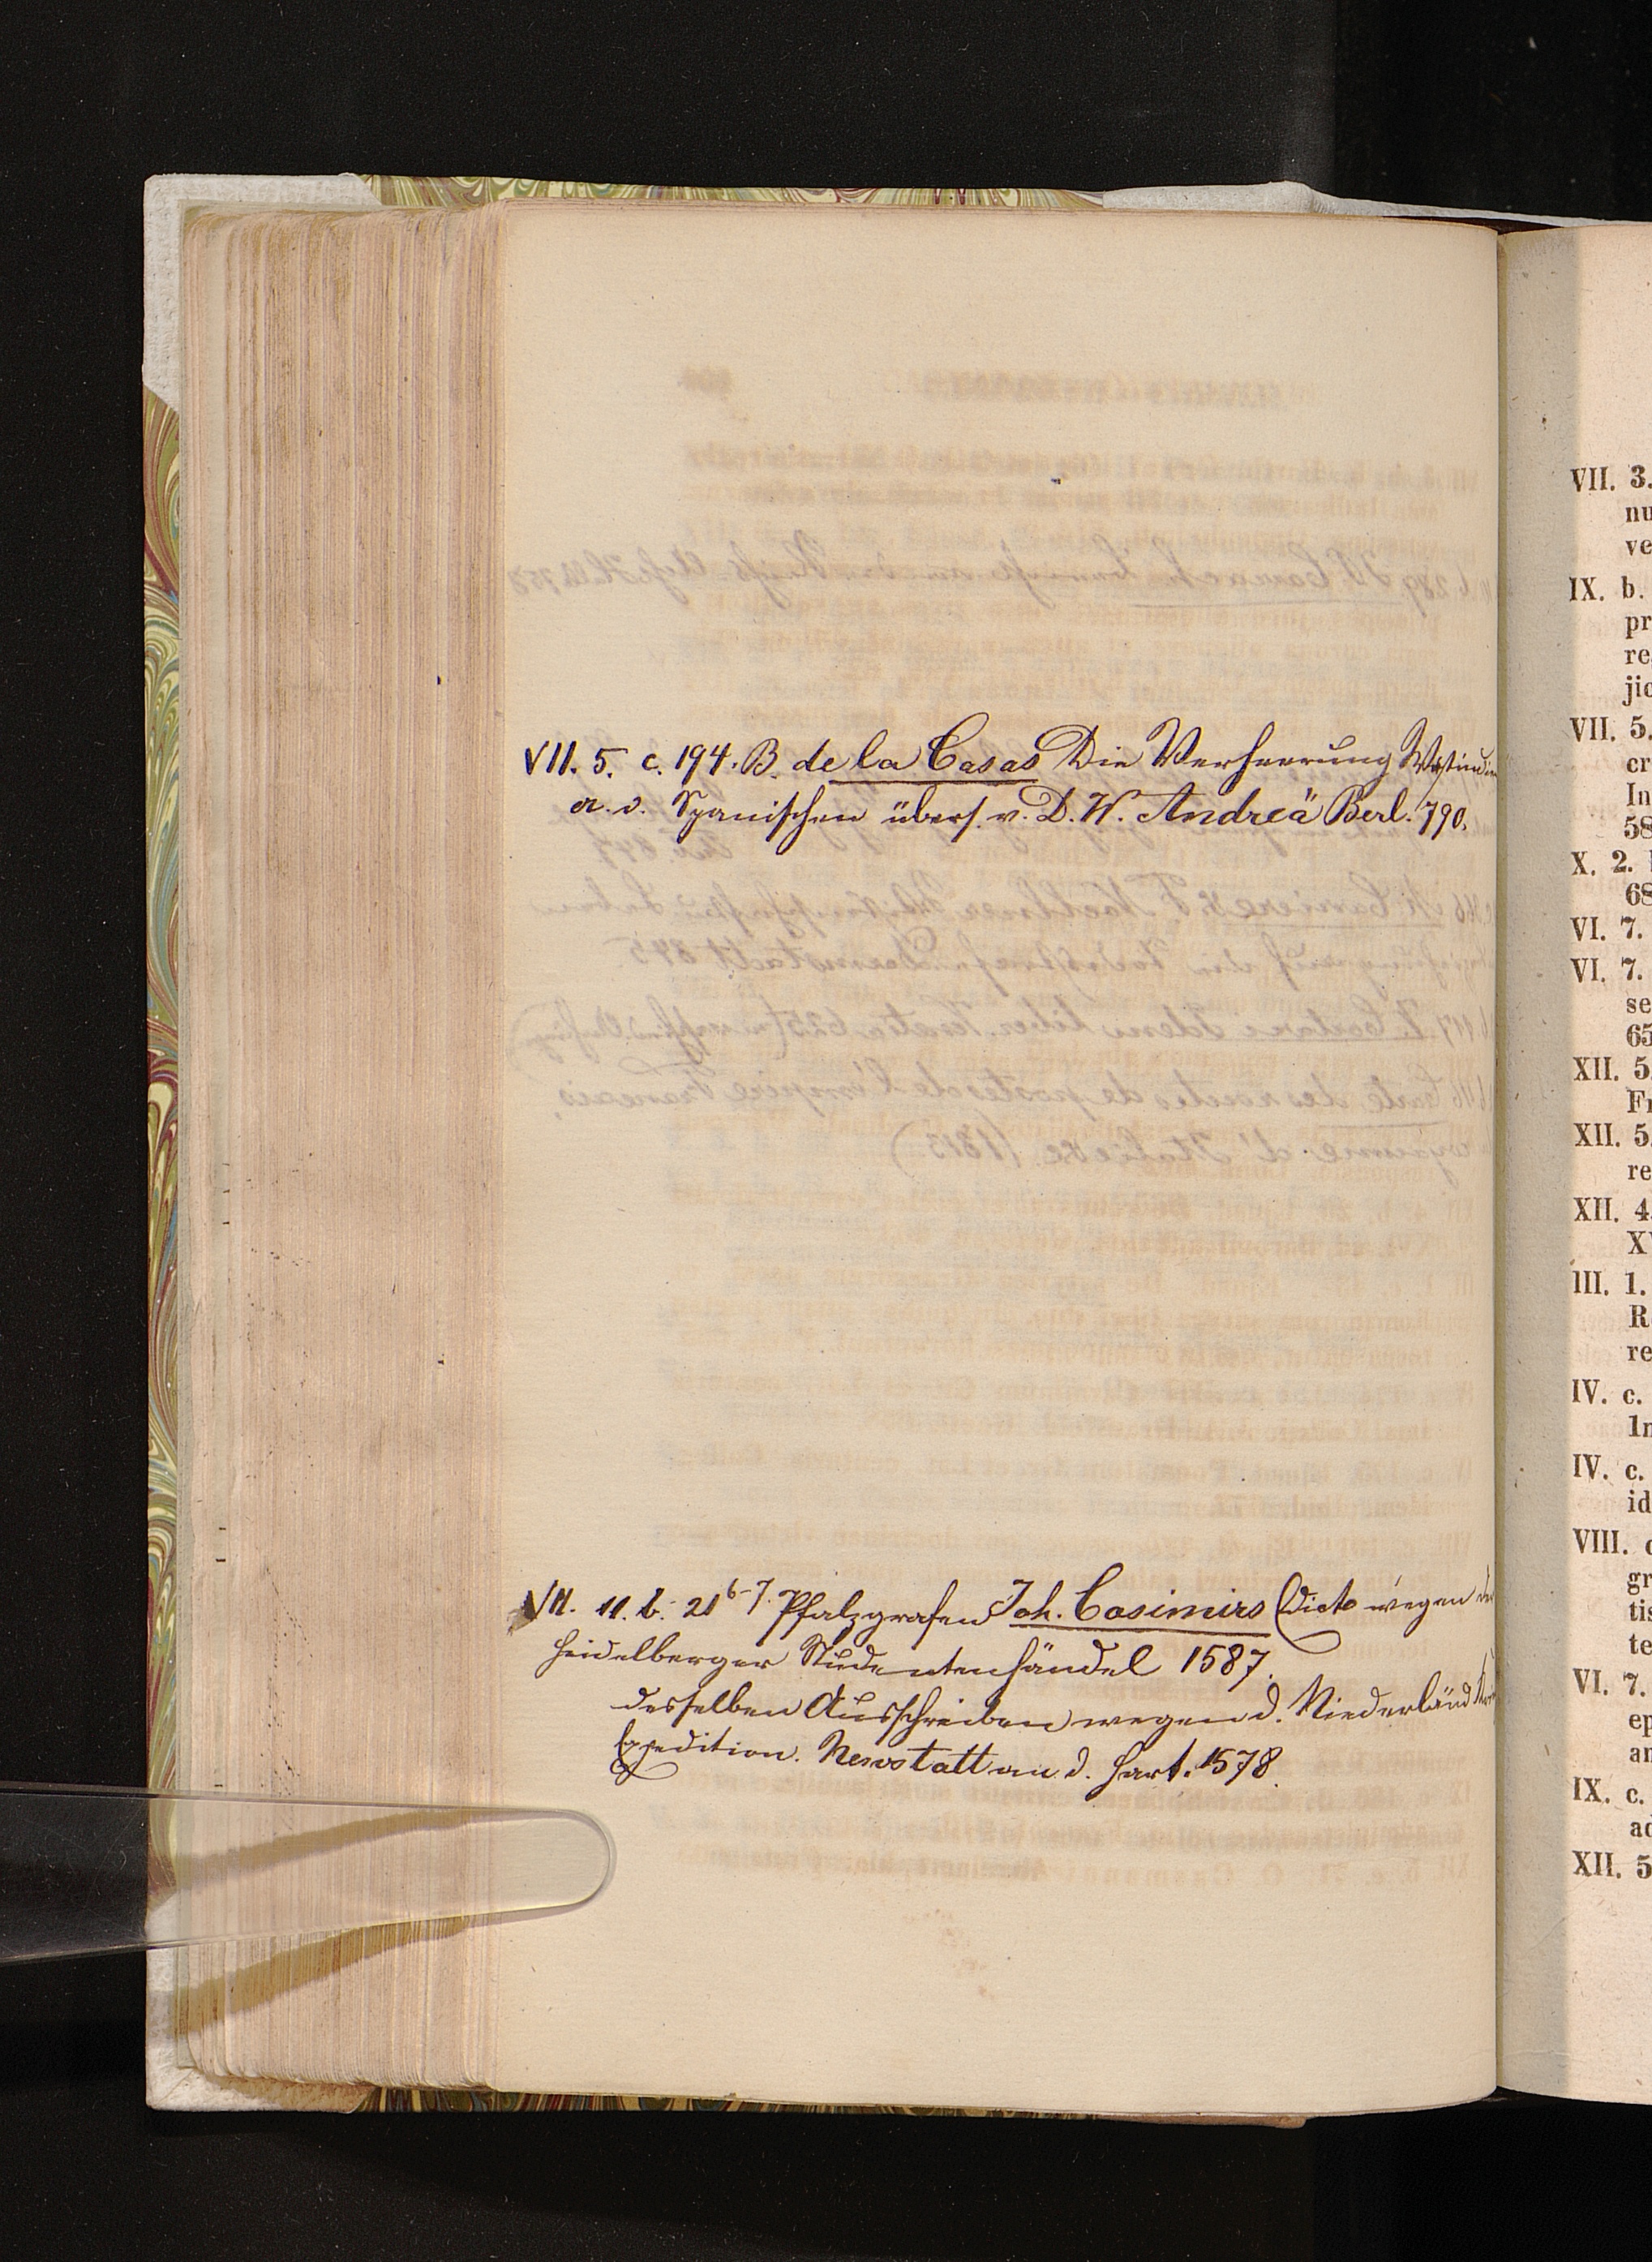 VII. 5. c. 194. B. de la Casas Die Verheerung Westindien
a. d. Spanischen übers. v. D. W. Andreä Berl. 790.
VII. 11. b. 21 6-7. Pfalzgrafen Joh. Casimirs Edicte wegen der
Heidelberger Studentenhändel 1587.
desselben Ausschreiben wegen d. Niederländ
Expedition. Newstatt an d. Hart. 1578.
VII. 3.
nu
ve
IX. b.
pr
re
jic
VII. 5.
cr
In
58
X. 2.
68
VI. 7.
VI. 7.
se
65
XII. 5
Fr
XII. 5
re
XII. 4
XV
III. 1.
R
re
IV. c.
In
IV. c.
id
VIII. c
gr
tis
te
VI. 7.
ep
an
IX. c.
ad
XII. 5